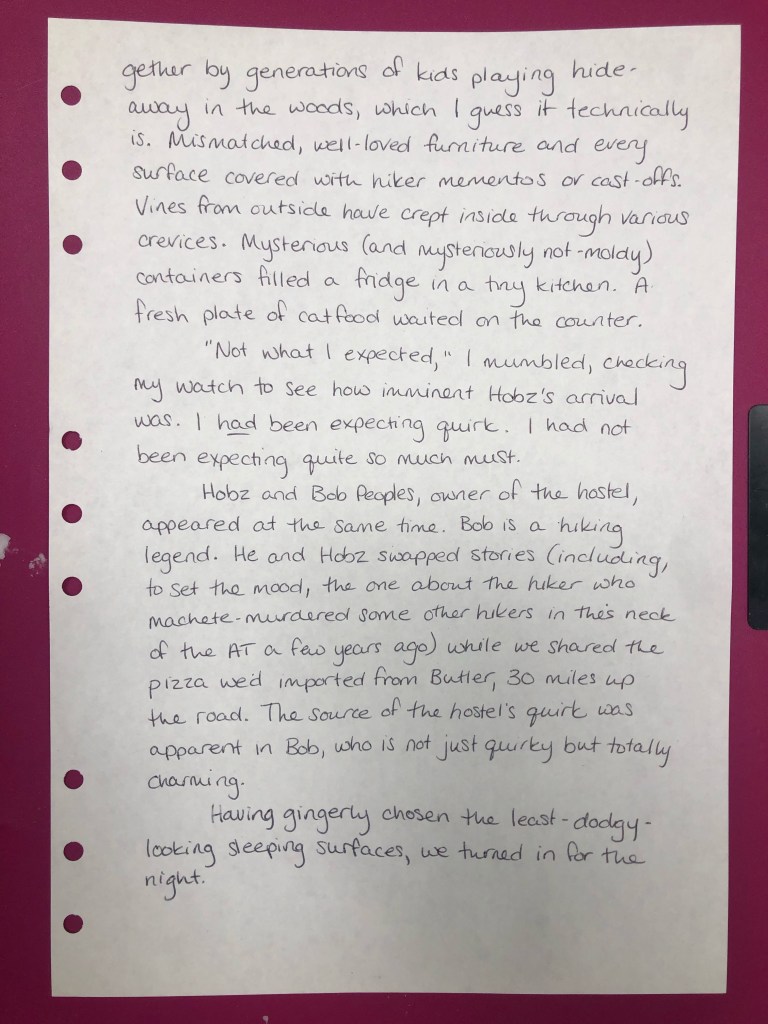 gether by generations of kids playing hide-
away in the woods, which I guess it technically
is. Mismatched, well-loved furniture and every
surface covered with hiker mementos or cast-offs.
Vines from outside have crept inside through various
crevices. Mysterious (and mysteriously not-moldy)
containers filled a fridge in a tiny kitchen. A
fresh plate of catfood waited on the counter.
"Not what I expected," I mumbled, checking
my watch to see how imminent Hobz's arrival
was. I had been expecting quirk. I had not
been expecting quite so much must.
Hobz and Bob Peoples, owner of the hostel,
appeared at the same time. Bob is a hiking
legend. He and Hobz swapped stories (including,
to set the mood, the one about the hiker who
machete-murdered some other hikers in this neck
of the AT a few years ago) while we shared the
pizza we'd imported from Butler, 30 miles up
the road. The source of the hostel's quirk was
apparent in Bob, who is not just quirky but totally
charming.
Having gingerly chosen the least-dodgy-
looking sleeping surfaces, we turned in for the
night.